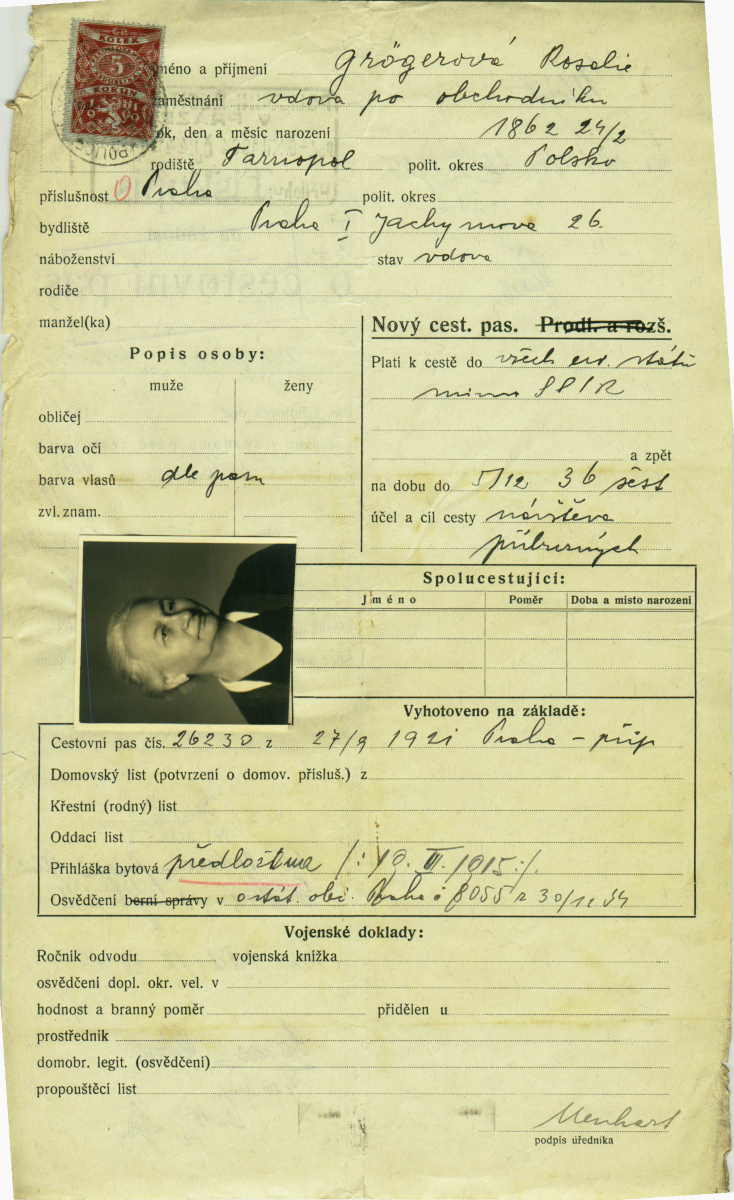 KOLEK
5
KORUN
jméno a příjmení Grögerová Rosalie
zaměstnání vdova po obchodníku
rok, den a měsíc narození 1862 24/2
rodiště Tarnopol polit. okres Polsko
příslušnost Praha polit. okres
bydliště Praha I Jachymova 26.
náboženství stav vdova
rodiče
manžel(ka)
Popis osoby:
muže ženy
obličej
barva očí
barva vlasů dle pasu
zvl. znam.
Nový cest. pas. Prodl. a rozš.
Platí k cestě do všech evr. států
mimo SSSR
a zpět
na dobu do 5/12 36 šest
účel a cíl cesty návštěva
příbuzných
Spolucestující:
Jméno Poměr Doba a místo narození
Vyhotoveno na základě:
Cestovní pas čís. 26230 z 27/9 1921 Praha - přip
Domovský list (potvrzení o domov. přísluš.) z
Křestní (rodný) list
Oddací list
Přihláška bytová předložena /: 19. III. 1915 :/.
Osvědčení berní správy v o stát. obč. Praha č 8055 z 30/11 34
Vojenské doklady:
Ročník odvodu vojenská knížka
osvědčení dopl. okr. vel. v
hodnost a branný poměr přidělen u
prostředník
domobr. legit. (osvědčení)
propouštěcí list
Menhart
podpis úředníka